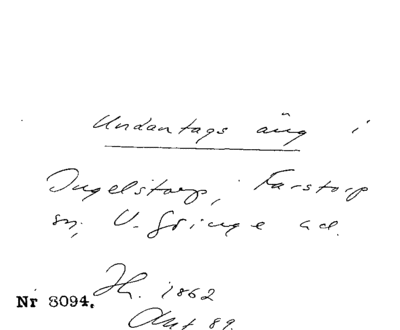 Undantags äng i
Ingelstorp, Farstorp
sn, V. Göinge hd.
H. 1862
Nr 8094.
Akt 89.